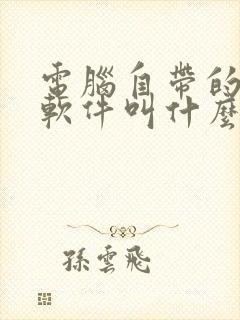 電腦自帶的
軟件叫什麼
孫雲飛